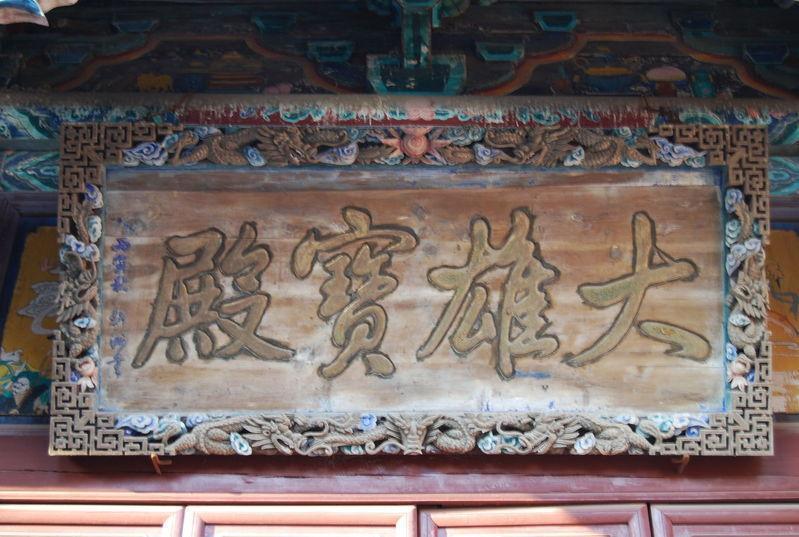 大雄寶殿